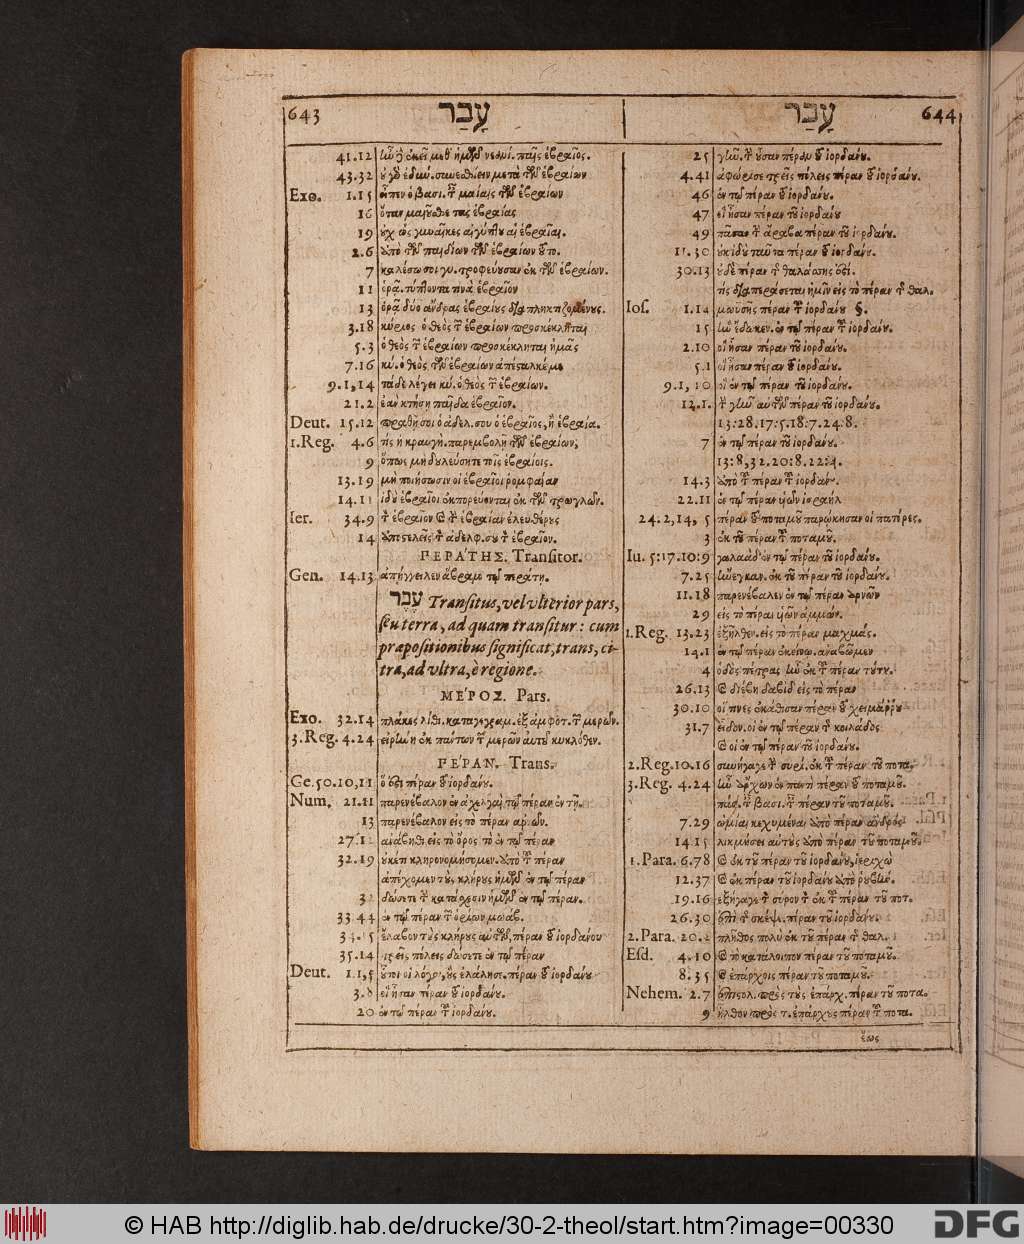 643 עָבַר
41.12 μεθ' ἡμῶν παῖς ἑβραῖος.
43.32 συνεσθίειν μετὰ τῶν ἑβραίων
Εχο. 1.15 εἶπεν ὁ βασι. τ μαίαις τῶν ἑβραίων
16 ὅταν μαιοῦσθε τὰς ἑβραίας
19 οὐχ ὡς γυναῖκες αἰγύπτου αἱ ἑβραῖαι.
2.6 ἀπὸ τῶν παιδίων τῶν ἑβραίων τοῦτο.
7 καλέσω σοι γυ. τροφεύουσαν ἐκ τῶν ἑβραίων.
11 ὁρᾷ. τύπτοντα τινὰ ἑβραῖον
13 ὁρᾷ δύο ἄνδρας ἑβραίους διαπληκτιζομένους.
3.18 κύριος ὁ θεὸς τῶν ἑβραίων προσκέκληται
5.3 ὁ θεὸς τῶν ἑβραίων προσκέκληται ἡμᾶς
7.16 κύ. ὁ θεὸς τῶν ἑβραίων ἀπέσταλκέ με
9.1,14 τάδε λέγει κύ. ὁ θεὸς τῶν ἑβραίων.
21.2 ἐὰν κτήσῃ παῖδα ἑβραῖον.
Deut. 15.12 πραθῇ σοι ὁ ἀδελ. σου ὁ ἑβραῖος, ἢ ἑβραία.
1.Reg. 4.6 τίς ἡ κραυγὴ. παρεμβολῇ τῶν ἑβραίων;
9 ὅπως μὴ δουλεύσητε τοῖς ἑβραίοις.
13.19 μὴ ποιήσωσιν οἱ ἑβραῖοι ῥομφαίαν
14.11 ἰδοὺ ἑβραῖοι ἐκπορεύονται ἐκ τῶν τρωγλῶν.
Ier. 34.9 τὸν ἑβραῖον καὶ τὴν ἑβραίαν ἐλευθέρους
14 ἀποστελεῖς τὸν ἀδελφ. σου τὸν ἑβραῖον.
ΠΕΡΑΤΗΣ. Transitor.
Gen. 14.13 ἀπήγγειλεν ἄβραμ τῷ περάτῃ.
עֵבֶר Transitus, vel vlterior pars,
seu terra, ad quam transitur: cum
præpositionibus significat, trans, ci-
tra, ad vltra, è regione.
ΜΕΡΟΣ. Pars.
Εχο. 32.14 πλάκες λίθι. καταγεγραμ. ἐξ ἀμφοτ. τῶν μερῶν.
3.Reg. 4.24 εἰρήνη ἐκ πάντων τῶν μερῶν αὐτοῦ κυκλόθεν.
ΠΕΡΑΝ. Trans.
Ge. 50.10,11 ὅ ἐστι πέραν τοῦ ἰορδάνου.
Num. 21.11 παρενέβαλον ἐν ἀχελγαὶ τῷ πέραν ἐν τῇ.
13 παρενέβαλον εἰς τὸ πέραν ἀρνῶν.
27.12 ἀνάβηθι εἰς τὸ ὄρος τὸ ἐν τῷ πέραν
32.19 οὐκέτι κληρονομήσομεν. ἀπὸ τοῦ πέραν
ἀπέχομεν τοὺς κλήρους ἡμῶν ἐν τῷ πέραν
32 δώσετε τὴν κατάσχεσιν ἡμῶν ἐν τῷ πέραν.
33.44 ἐν τῷ πέραν τῶν ὁρίων μωάβ.
34.15 ἔλαβον τοὺς κλήρους αὐτῶν, πέραν τοῦ ἰορδάνου
35.14 τρεῖς πόλεις δώσετε ἐν τῷ πέραν
Deut. 1.1,5 οὗτοι οἱ λόγοι, οὓς ἐλάλησε. πέραν τοῦ ἰορδάνου
3.8 οἳ ἦσαν πέραν τοῦ ἰορδάνου.
20 ἐν τῷ πέραν τοῦ ἰορδάνου.
עָבַר 644
25 γῆν. τὴν οὖσαν πέραν τοῦ ἰορδάνου.
4.41 ἀφώρισε τρεῖς πόλεις πέραν τοῦ ἰορδάνου.
46 ἐν τῷ πέραν τοῦ ἰορδάνου.
47 οἳ ἦσαν πέραν τοῦ ἰορδάνου
49 πᾶσαν τὴν ἄραβα πέραν τοῦ ἰορδάνου.
11.30 οὐκ ἰδοὺ ταῦτα πέραν τοῦ ἰορδάνου.
30.13 οὐδὲ πέραν τῆς θαλάσσης ἐστί.
τίς διαπεράσεται ἡμῖν εἰς τὸ πέραν τῆς θαλ.
Ios. 1.14 μωϋσῆς πέραν τοῦ ἰορδάνου §.
15 ἣν ἔδωκεν. ἐν τῷ πέραν τοῦ ἰορδάνου.
2.10 οἳ ἦσαν πέραν τοῦ ἰορδάνου.
5.1 οἳ ἦσαν πέραν τοῦ ἰορδάνου.
9.1,10 οἱ ἐν τῷ πέραν τοῦ ἰορδάνου.
12.1. τὴν γῆν αὐτῶν πέραν τοῦ ἰορδάνου.
13:28.17:5.18:7.24:8.
7 ἐν τῷ πέραν τοῦ ἰορδάνου.
13:8,32.20:8.22:4.
14.3 ἀπὸ τοῦ πέραν τοῦ ἰορδάν.
22.11 ἐν τῷ πέραν υἱῶν ἰσραήλ
24.2,14,5 πέραν τοῦ ποταμοῦ παρῴκησαν οἱ πατέρες.
3 ἐκ τοῦ πέραν τοῦ ποταμοῦ.
Iu. 5:17.10:9 γαλαὰδ ἐν τῷ πέραν τοῦ ἰορδάνου.
7.25 ἤνεγκαν. ἐκ τοῦ πέραν τοῦ ἰορδάνου.
11.18 παρενέβαλεν ἐν τῷ πέραν ἀρνῶν
29 εἰς τὸ πέραν υἱῶν ἀμμών.
1.Reg. 13.23 ἐξῆλθεν. εἰς τὸ πέραν μαχμάς.
14.1 ἐν τῷ πέραν ἐκείνῳ. ἀναβῶμεν
4 ὀδὸς πέτρας ἦν ἐκ τοῦ πέραν τούτου.
26.13 καὶ διέβη δαβὶδ εἰς τὸ πέραν
30.10 οἵτινες ἐκάθισαν πέραν τοῦ χειμάρρου
31.7 εἶδον. οἱ ἐν τῷ πέραν τῆς κοιλάδος
καὶ οἱ ἐν τῷ πέραν τοῦ ἰορδάνου.
2.Reg. 10.16 συνήγαγε τὴν συρί. ἐκ τοῦ πέραν τοῦ ποτα.
3.Reg. 4.24 ἦν ἄρχων ἐν παντὶ πέραν τοῦ ποταμοῦ.
πάσ. τ βασι. τ πέραν τοῦ ποταμοῦ.
7.29 ὠμίαι κεχυμέναι ἀπὸ πέραν ἀνδρός
14.15 λικμήσει αὐτοὺς ἀπὸ πέραν τοῦ ποταμοῦ.
1.Para. 6.78 καὶ ἐκ τοῦ πέραν τοῦ ἰορδάνου, ἱεριχὼ
12.37 καὶ ἐκ πέραν τοῦ ἰορδάνου ἀπὸ ῥουβήμ.
19.16 ἐξήγαγε τὸν σύρον τὸν ἐκ τοῦ πέραν τοῦ ποτ.
26.30 ἐπὶ τῆς σκέψε. πέραν τοῦ ἰορδάνου.
2.Para. 20.2 πλῆθος πολὺ ἐκ τοῦ πέραν τῆς θαλ.
Esd. 4.10 καὶ τὸ κατάλοιπον πέραν τοῦ ποταμοῦ.
8.35 καὶ ἐπάρχοις πέραν τοῦ ποταμοῦ.
Nehem. 2.7 ἐπιστολ. πρὸς τοὺς ἐπάρχ. πέραν τοῦ ποτα.
9 ἦλθον πρὸς τ. ἐπάρχους πέραν τοῦ ποτα.
ἕως
© HAB http://diglib.hab.de/drucke/30-2-theol/start.htm?image=00330
DFG